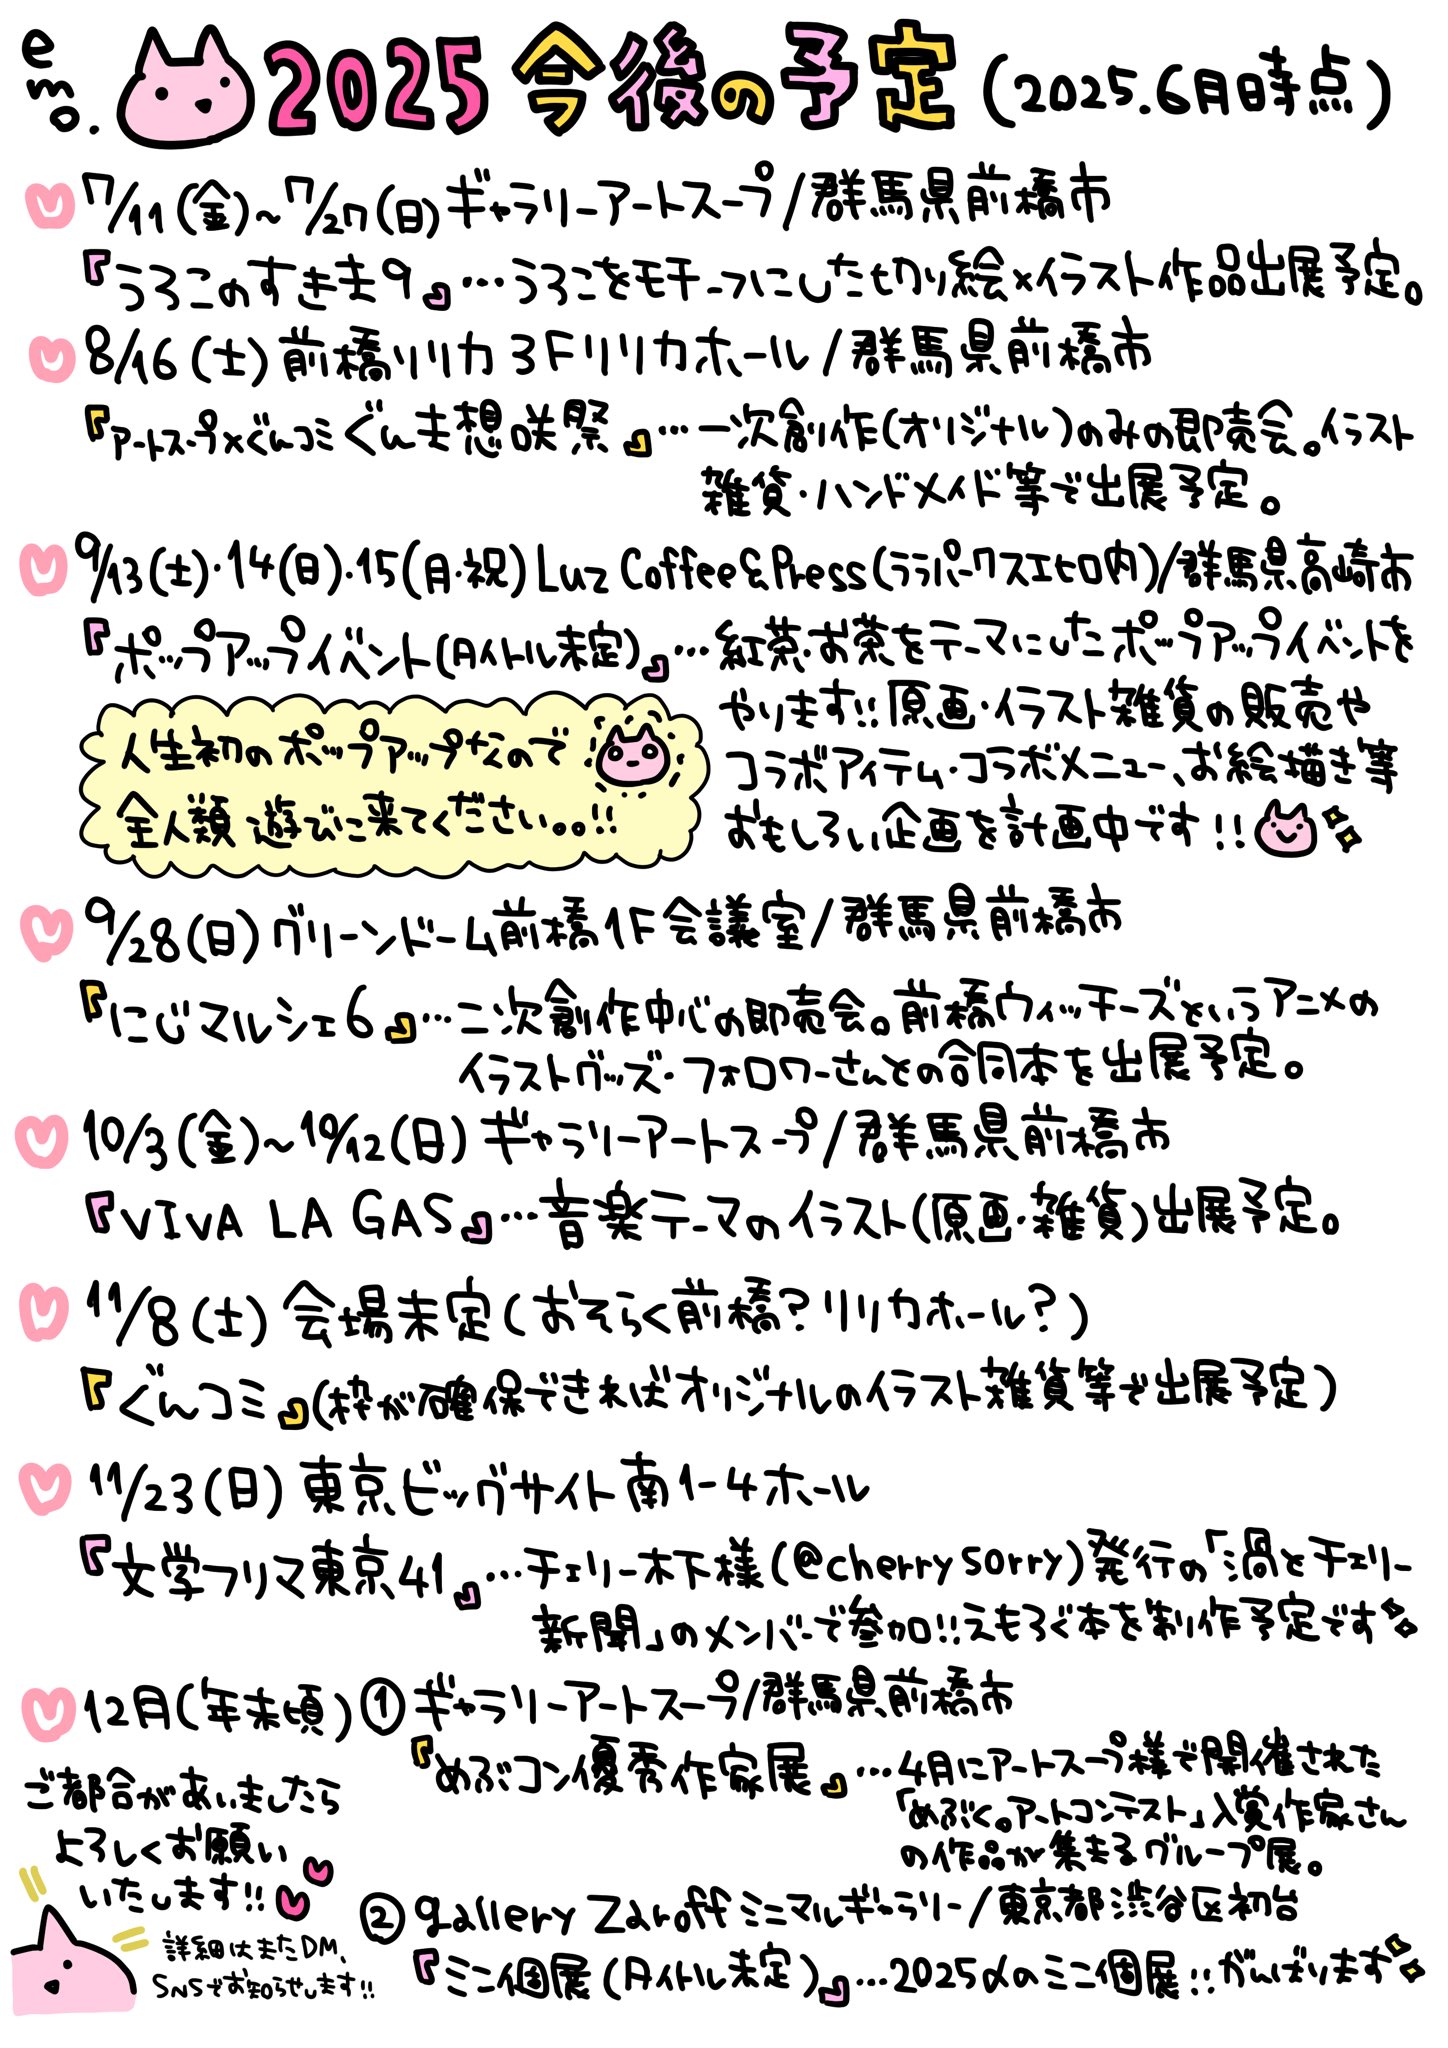 emo.
2025 今後の予定 (2025.6月時点)
7/11(金)~7/27(日) ギャラリーアートスープ/群馬県前橋市
『うろこのすきま9』…うろこをモチーフにした切り絵×イラスト作品出展予定。
8/16(土) 前橋リリカ 3Fリリカホール/群馬県前橋市
『アートスープ×ぐんコミ ぐんま想咲祭』…一次創作(オリジナル)のみの即売会。イラスト
雑貨・ハンドメイド等で出展予定。
9/13(土)・14(日)・15(月・祝) Luz Coffee&Press(ララパークスエヒロ内)/群馬県高崎市
『ポップアップイベント(タイトル未定)』…紅茶・お茶をテーマにしたポップアップイベントを
やります!!原画・イラスト雑貨の販売や
コラボアイテム・コラボメニュー、お絵描き等
おもしろい企画を計画中です!!
人生初のポップアップなので
全人類 遊びに来てください。。!!
9/28(日) グリーンドーム前橋 1F 会議室/群馬県前橋市
『にじマルシェ6』…二次創作中心の即売会。前橋ウィッチーズというアニメの
イラストグッズ・フォロワーさんとの合同本を出展予定。
10/3(金)~10/12(日) ギャラリーアートスープ/群馬県前橋市
『VIVA LA GAS』…音楽テーマのイラスト(原画・雑貨)出展予定。
11/8(土) 会場未定(おそらく前橋?リリカホール?)
『ぐんコミ』(枠が確保できればオリジナルのイラスト雑貨等で出展予定)
11/23(日) 東京ビッグサイト南1-4ホール
『文学フリマ東京41』…チェリー木下様(@cherrysorry)発行の「渦とチェリー
新聞」のメンバーで参加!!えもろぐ本を制作予定です
12月(年末頃) ①ギャラリーアートスープ/群馬県前橋市
『めぶコン優秀作家展』…4月にアートスープ様で開催された
「めぶく。アートコンテスト」入賞作家さん
の作品が集まるグループ展。
②gallery Zaroffミニマルギャラリー/東京都渋谷区初台
『ミニ個展(タイトル未定)』…2025〆のミニ個展!!がんばります
ご都合があいましたら
よろしくお願い
いたします!!
詳細はまたDM、
SNSでお知らせします!!